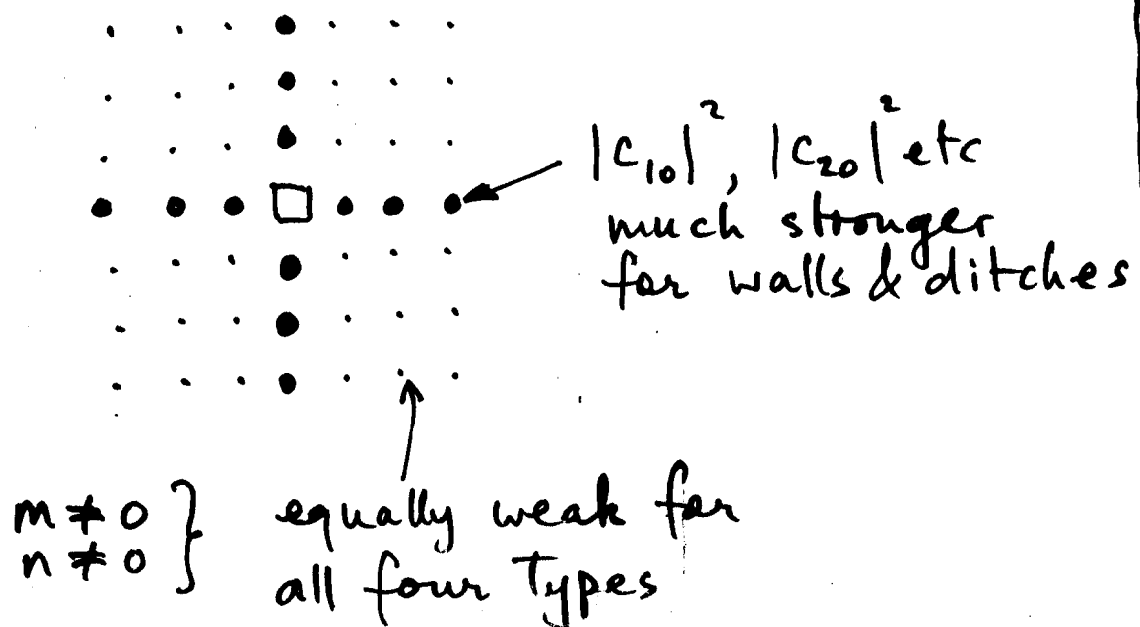 |c₁₀|², |c₂₀|² etc
much stronger
for walls & ditches
m ≠ 0 } equally weak for
n ≠ 0 } all four Types